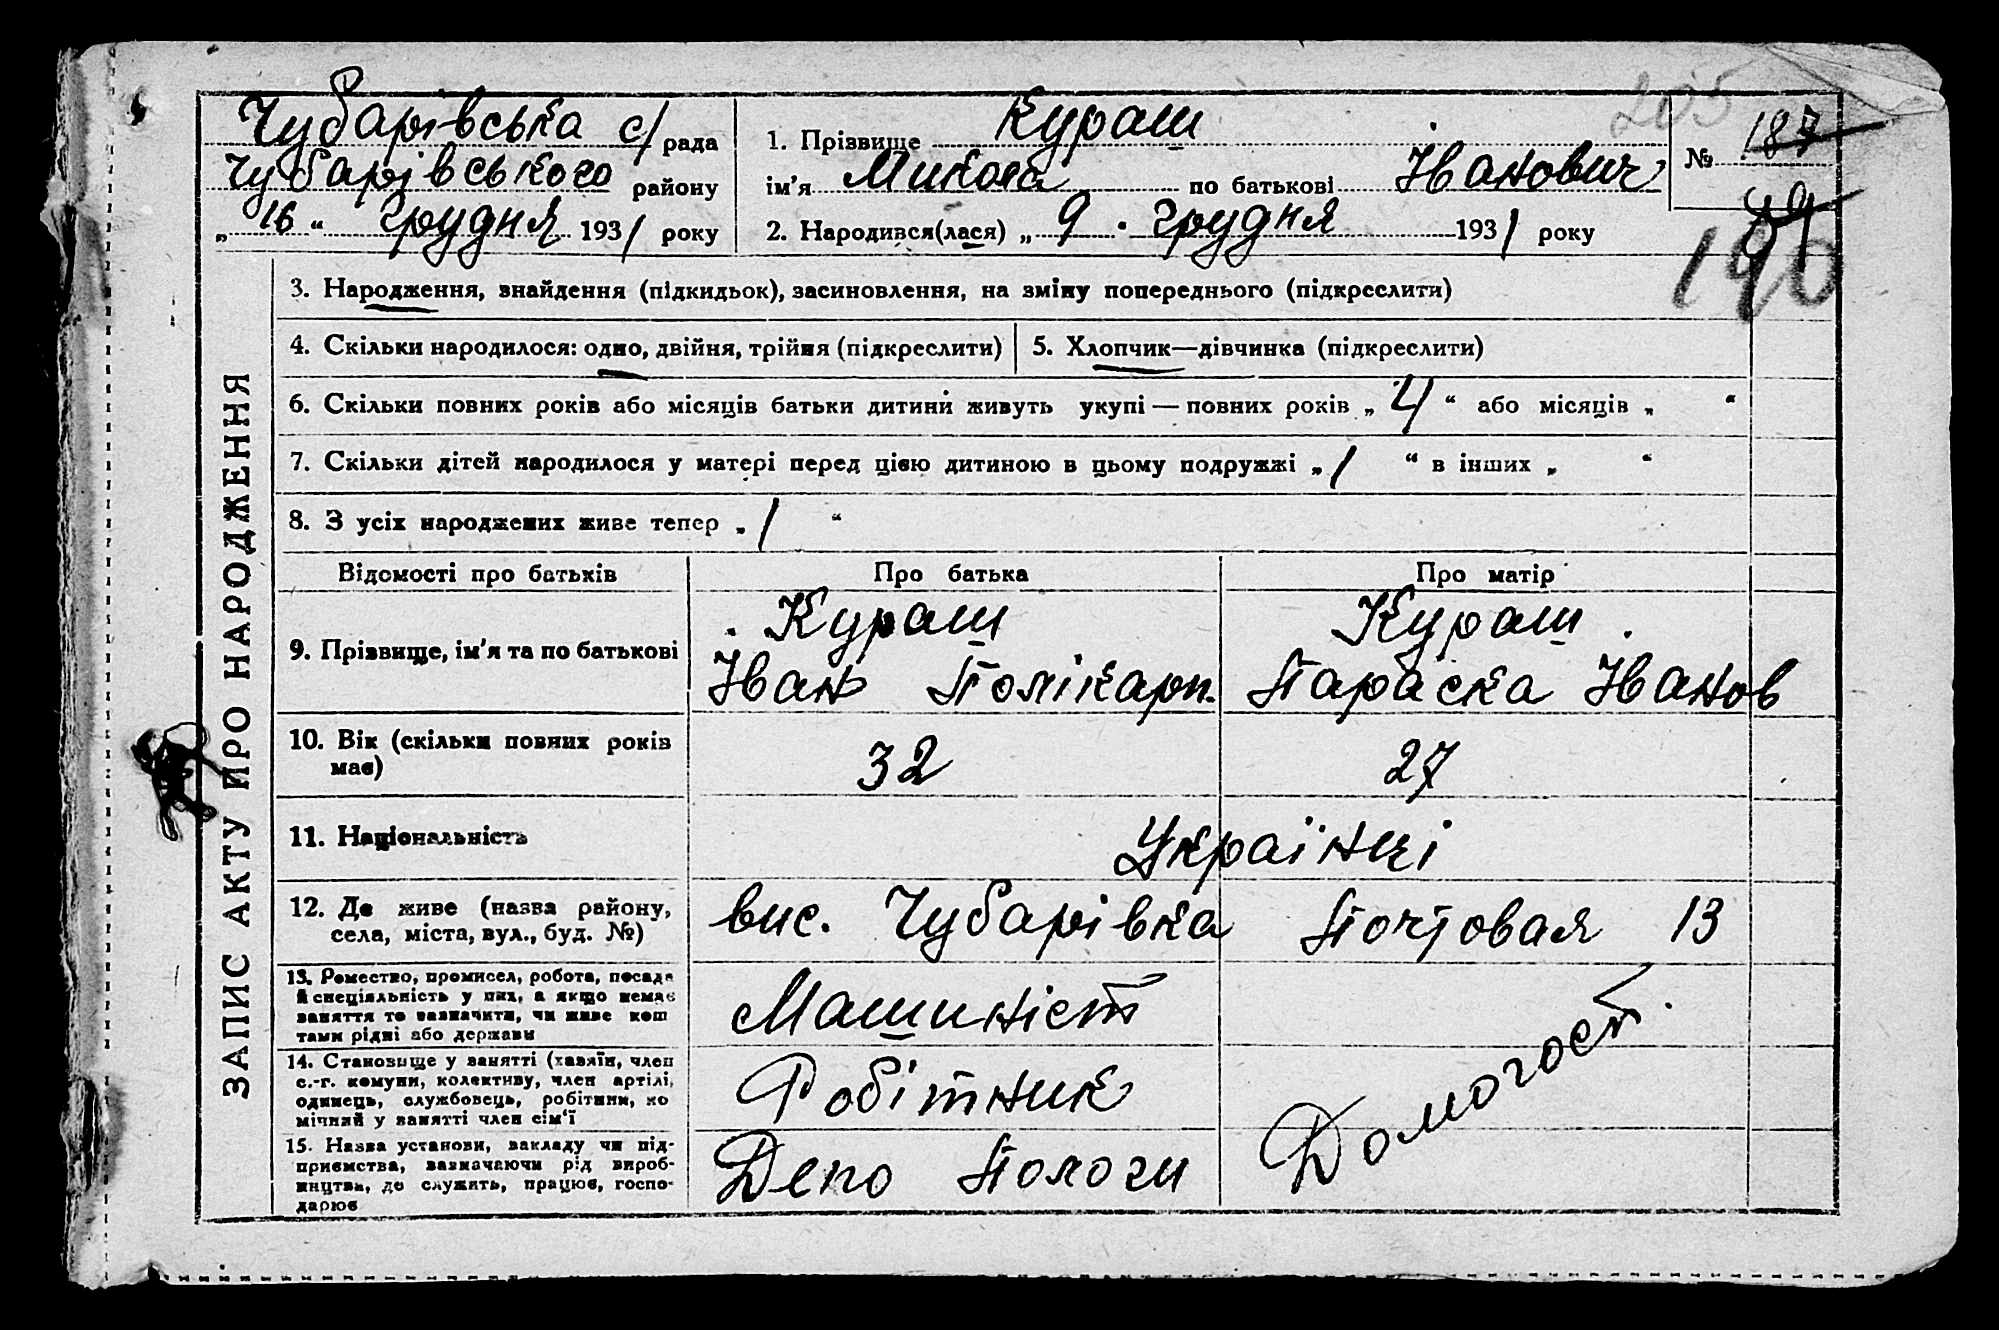 205
Чубарівська с/рада
Чубарівського району
„16“ Грудня 1931 року
1. Прізвище Кураш
ім'я Микола по батькові Іванович
2. Народився(лася) „9. Грудня 1931 року
№ 187
190
ЗАПИС АКТУ ПРО НАРОДЖЕННЯ
3. Народження, знайдення (підкидьок), засиновлення, на зміну попереднього (підкреслити)
4. Скільки народилося: одно, двійня, трійня (підкреслити)
5. Хлопчик—дівчинка (підкреслити)
6. Скільки повних років або місяців батьки дитини живуть укупі — повних років „4“ або місяців „ “
7. Скільки дітей народилося у матері перед цією дитиною в цьому подружжі „1 “ в інших „ “
8. З усіх народжених живе тепер „1 “
Відомості про батьків
Про батька
Про матір
9. Прізвище, ім'я та по батькові
Кураш
Іван Полікарп.
Кураш
Параска Іванов
10. Вік (скільки повних років
має)
32
27
11. Національність
Українці
12. Де живе (назва району,
села, міста, вул., буд. №)
вис. Чубарівка Почтовая 13
13. Ремество, промисел, робота, посада
й спеціяльність у них, а якщо немає
заняття то зазначити, чи живе кош
тами рідні або держави
Машиніст
Домогост.
14. Становище у занятті (хазяїн, член
с.-г. комуни, колективу, член артілі,
одинець, службовець, робітник, по
мічний у занятті член сім'ї
Робітник
15. Назва установи, закладу чи під-
приємства, зазначаючи рід вироб-
ництва, де служить, працює, госпо-
дарює
Депо Пологи